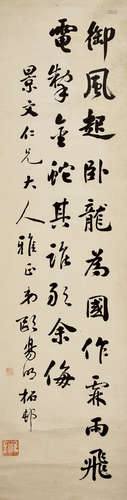 御風起卧龍為國作霖雨飛
電掣金蛇其誰敢余侮
景文仁兄大人雅正弟歐陽柘邨